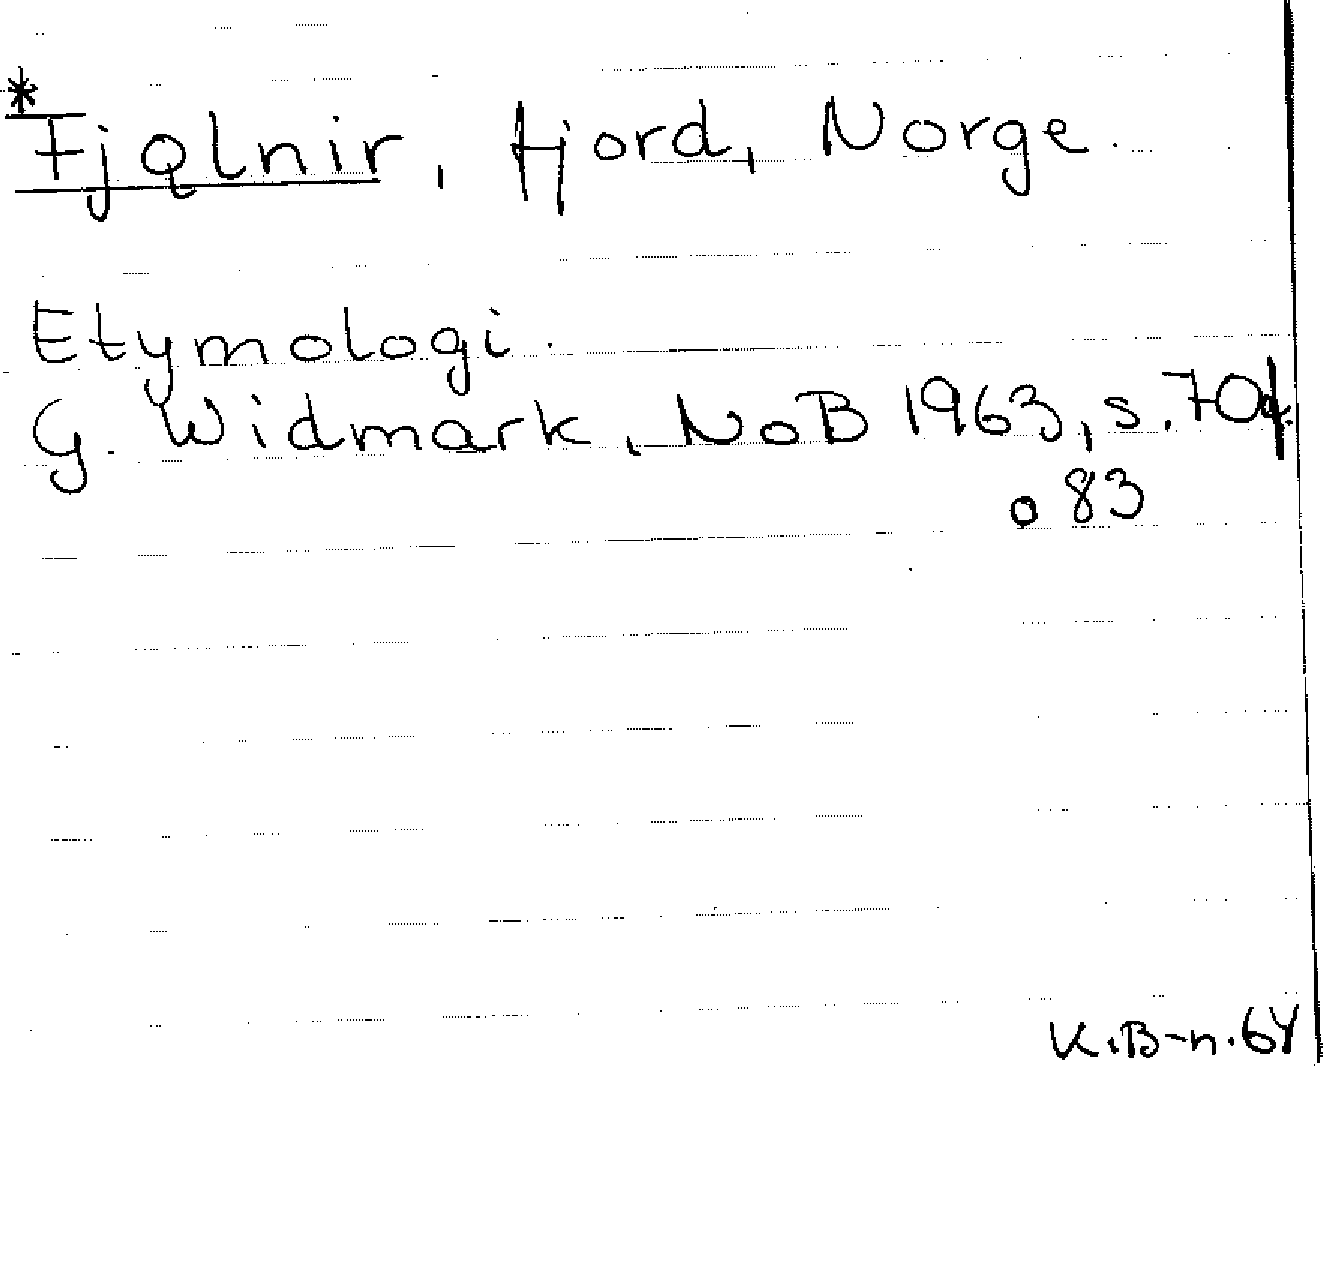 *Fjǫlnir, fjord, Norge.
Etymologi.
G. Widmark, NoB 1963, s. 70f.
o 83
K.B-n. 64